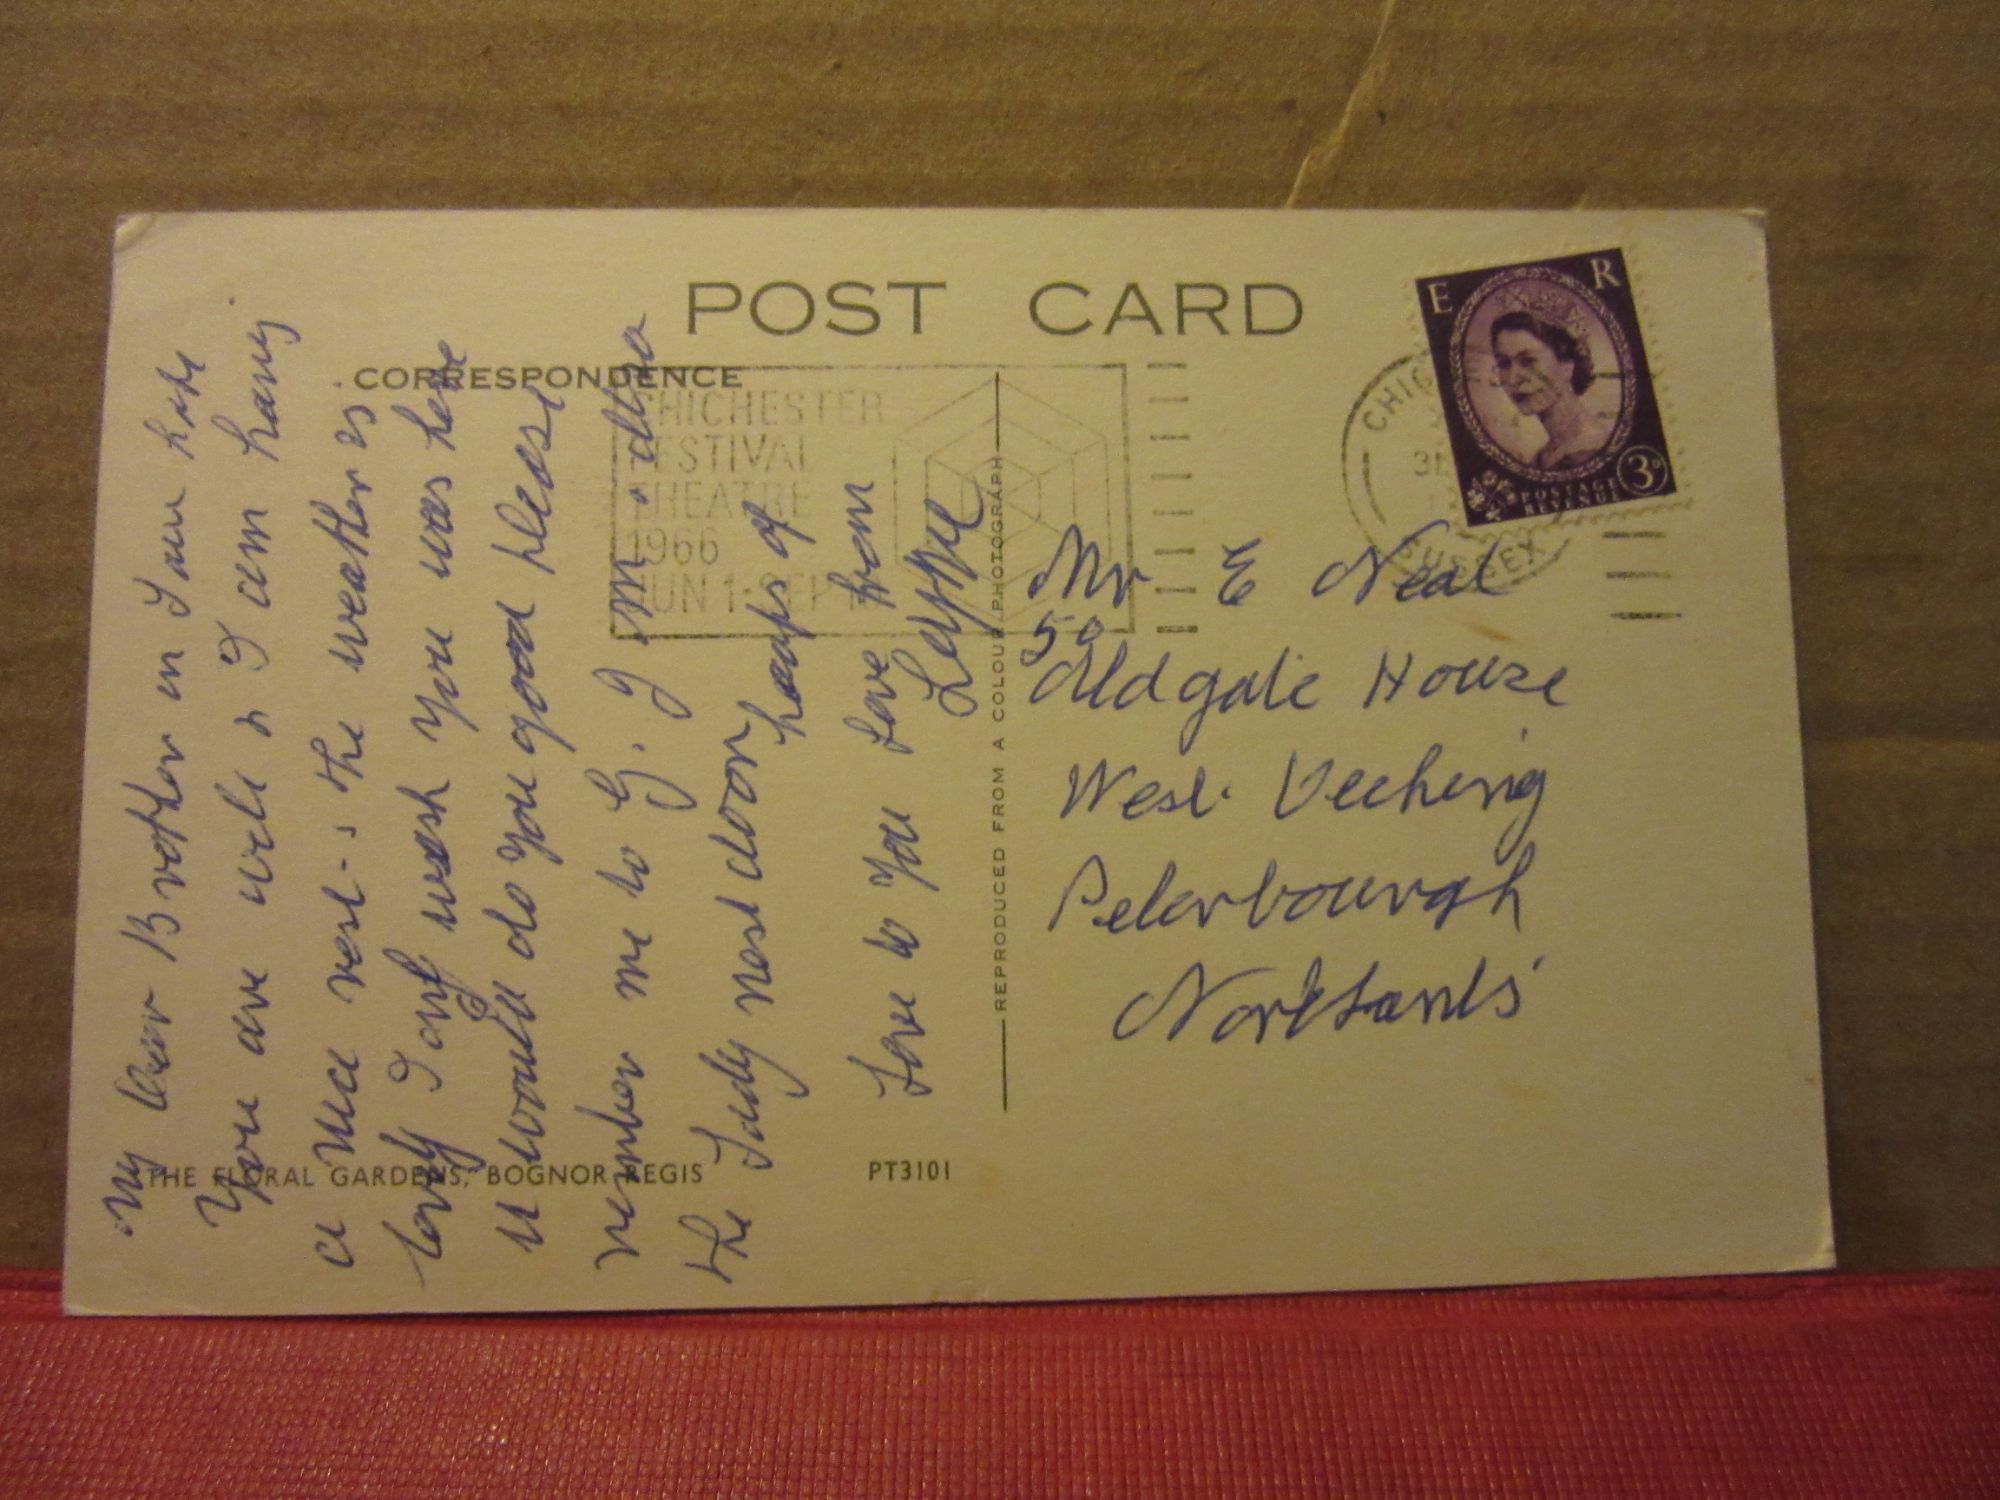 POST CARD
CORRESPONDENCE
CHICHESTER
FESTIVAL
THEATRE
1966
JUN 1-SEP
E R
3D
POSTAGE
REVENUE
CHIC
SUSSEX
My Dear Brother in I am hope
You are well & I am haveing
a nice rest - the weather is
lovely I only wish you was here
it would do you good please
remember me to G. J M. also
the Lady next door heaps of
Love to You Love from
Mr E Neal
50
Aldgate House
West
Peterbourgh
Northants
REPRODUCED FROM A COLOUR PHOTOGRAPH
THE FLORAL GARDENS, BOGNOR REGIS
PT3101